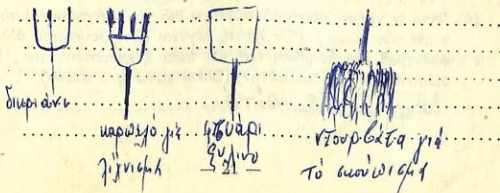 δικριάνι
καρπελό γιὰ
λίχνισμα
φτυάρι
ξύλινο
21
ντουρβάτα γιά
τό σκούπισμα